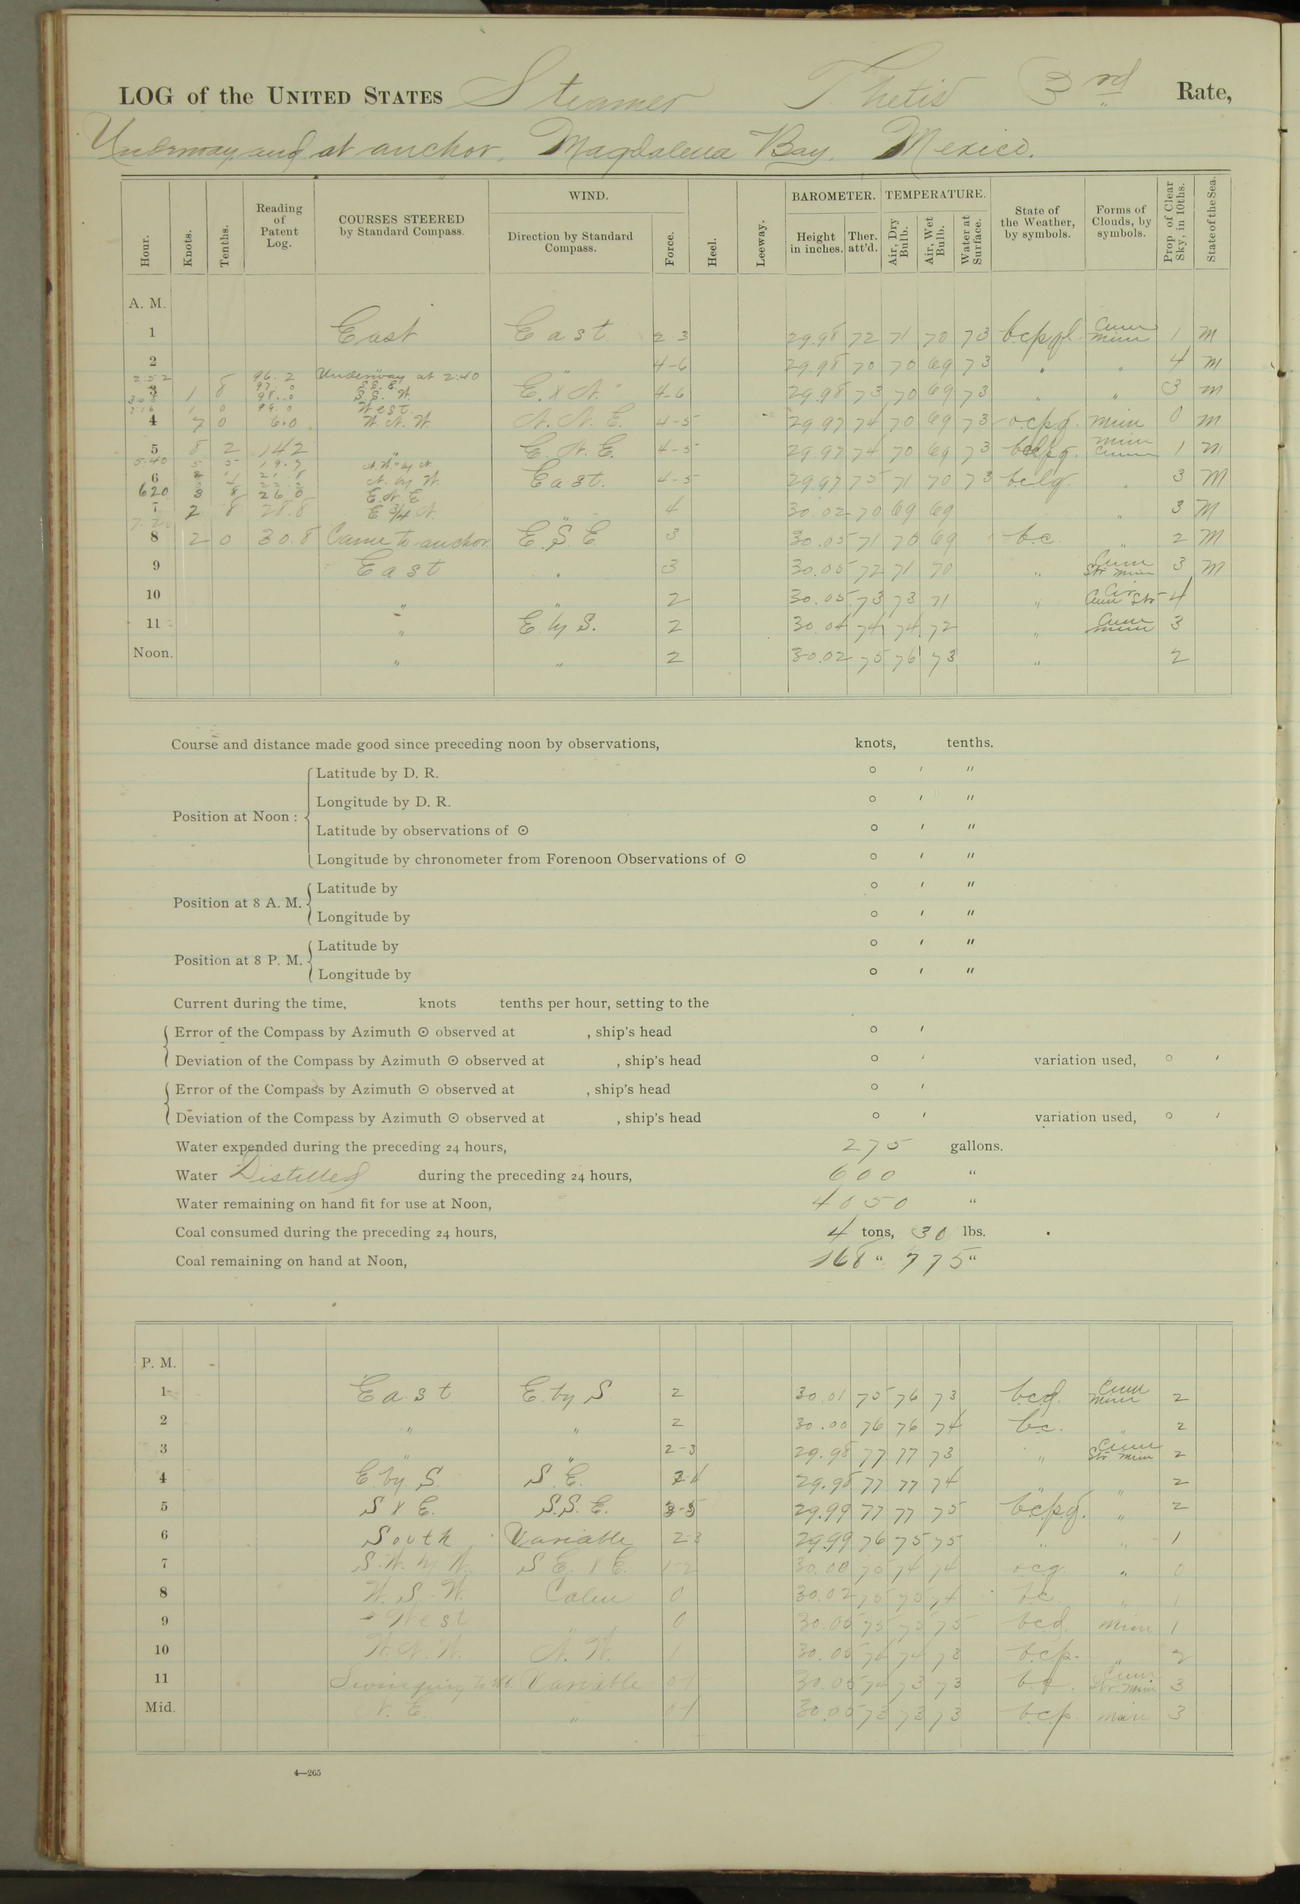 LOG of the UNITED STATES Steamer Thetis 3rd Rate,
Underway and at anchor, Magdalena Bay, Mexico.
Hour. Knots. Tenths. Reading of Patent Log. COURSES STEERED by Standard Compass. WIND. Direction by Standard Compass. Force. Heel. Leeway. BAROMETER. Height in inches. Ther. att'd. TEMPERATURE. Air, Dry Bulb. Air, Wet Bulb. Water at Surface. State of the Weather, by symbols. Forms of Clouds, by symbols. Prop. of Clear Sky, in 10ths. State of the Sea.
A. M.
1 East East 2-3 29.98 72 71 70 73 Cum Nim 1 M
2 " 4-6 29.98 70 70 69 73 " " 4 M
2:52 96.2 Underway at 2:40
3 1 8 98.0 E. x N. 4-6 29.98 73 70 69 73 " " 3 M
99.0 West
4 7 0 6.0 W. N. W. N. N. E. 4-5 29.97 74 70 69 73 ocpq. Nim 0 M
5 8 2 14.2 E. N. E. 4-5 29.97 74 70 69 73 Nim Cum 1 M
5:40 5 5 19.7 N. W. by N.
6 N. by W. East. 4-5 29.97 75 71 70 73 " 3 M
620 3 8 26.0 E. N. E.
7 2 8 28.8 E 3/4 N " 4 30.02 70 69 69 " 3 M
8 2 0 30.8 Came to anchor E. S. E. 3 30.05 71 70 69 bc. " 2 M
9 East " 3 30.05 72 71 70 " Cum Str Nim 3 M
10 " " 2 30.05 73 73 71 " Cir Cum Str 4
11 " E by S. 2 30.04 74 74 72 " Cum Nim 3
Noon. " " 2 30.02 75 76 73 " 2
Course and distance made good since preceding noon by observations, knots, tenths.
Position at Noon: Latitude by D. R. ° ′ ″
Longitude by D. R. ° ′ ″
Latitude by observations of ☉ ° ′ ″
Longitude by chronometer from Forenoon Observations of ☉ ° ′ ″
Position at 8 A. M. Latitude by ° ′ ″
Longitude by ° ′ ″
Position at 8 P. M. Latitude by ° ′ ″
Longitude by ° ′ ″
Current during the time, knots tenths per hour, setting to the
Error of the Compass by Azimuth ☉ observed at , ship's head ° ′
Deviation of the Compass by Azimuth ☉ observed at , ship's head ° ′ variation used, ° ′
Error of the Compass by Azimuth ☉ observed at , ship's head ° ′
Deviation of the Compass by Azimuth ☉ observed at , ship's head ° ′ variation used, ° ′
Water expended during the preceding 24 hours, 275 gallons.
Water Distilled during the preceding 24 hours, 600 "
Water remaining on hand fit for use at Noon, 4050 "
Coal consumed during the preceding 24 hours, 4 tons, 30 lbs.
Coal remaining on hand at Noon, 168 " 775 "
P. M.
1 East E by S 2 30.01 75 76 73 bcd. Cum Nim 2
2 " " 2 30.00 76 76 74 bc. " 2
3 " " 2-3 29.98 77 77 73 " Cum Str Nim 2
4 E. by S. S. E. 29.98 77 77 74 " " 2
5 S x E. S.S. E. 3-5 29.99 77 77 75 bcpq. " 2
6 South Variable 2-3 29.99 76 75 75 " " 1
7 S. W. by W. S E. x E. 1-2 30.00 75 74 74 ocq. " 0
8 W. S. W. Calm 0 30.02 75 75 74 bc. " 1
9 West " 0 30.05 75 75 75 bcd. Nim 1
10 W. N. W. N. W. 1 30.05 74 74 73 bcp. " 2
11 Swinging to Variable 0-1 30.05 74 73 73 Cum Str. Nim 3
Mid. N. E. " 0-1 30.05 73 73 73 bcp. Nim 3
4—265